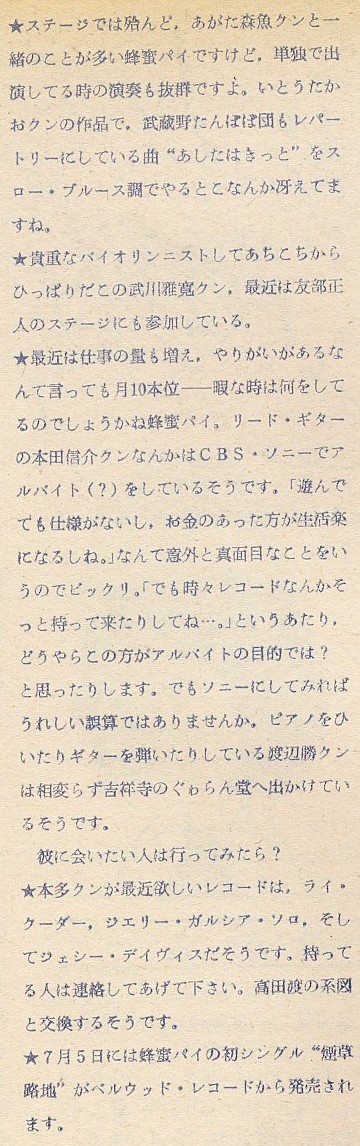 ★ステージでは殆んど，あがた森魚クンと一
緒のことが多い蜂蜜パイですけど，単独で出
演してる時の演奏も抜群ですよ。いとうたか
おクンの作品で，武蔵野たんぽぽ団もレパー
トリーにしている曲“あしたはきっと”をス
ロー・ブルース調でやるとこなんか冴えてま
すね。
★貴重なバイオリンニストしてあちこちから
ひっぱりだこの武川雅寛クン，最近は友部正
人のステージにも参加している。
★最近は仕事の量も増え，やりがいがあるな
んて言っても月10本位――暇な時は何をして
るのでしょうかね蜂蜜パイ。リード・ギター
の本田信介クンなんかはＣＢＳ・ソニーでア
ルバイト（？）をしているそうです。「遊んで
ても仕様がないし，お金のあった方が生活楽
になるしね。」なんて意外と真面目なことをい
うのでビックリ。「でも時々レコードなんかそ
っと持って来たりしてね…。」というあたり，
どうやらこの方がアルバイトの目的では？
と思ったりします。でもソニーにしてみれば
うれしい誤算ではありませんか。ピアノをひ
いたりギターを弾いたりしている渡辺勝クン
は相変らず吉祥寺のぐゎらん堂へ出かけてい
るそうです。
　彼に会いたい人は行ってみたら？
★本多クンが最近欲しいレコードは，ライ・
クーダー，ジエリー・ガルシア・ソロ，そし
てジェシー・デイヴィスだそうです。持って
る人は連絡してあげて下さい。高田渡の系図
と交換するそうです。
★７月５日には蜂蜜パイの初シングル“煙草
路地”がベルウッド・レコードから発売され
ます。